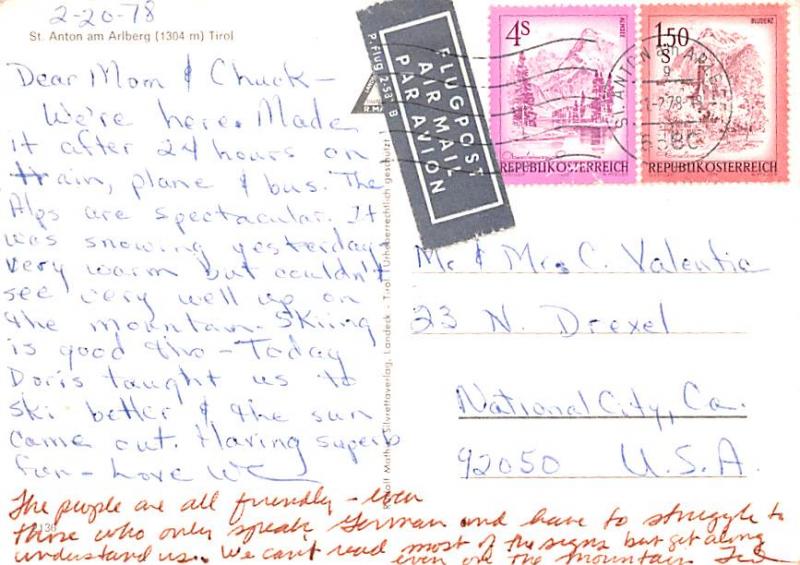 2-20-78
St. Anton am Arlberg (1304 m) Tirol
Dear Mom & Chuck-
We're here. Made
it after 24 hours on
train, plane & bus. The
Alps are spectacular. It
was snowing yesterday-
very warm but couldn't
see very well up on
the mountain. Skiing
is good tho- Today
Doris taught us to
ski better & the sun
came out. Having superb
fun- Love
The people are all friendly - even
those who only speak German and have to struggle to
understand us.. We can't read most of the signs but get along
even on the mountain
136
FLUGPOST
AIR MAIL
PAR AVION
P. flug 2-53 B
4s
ALMSEE
REPUBLIK ÖSTERREICH
1.50
s
BLUDENZ
REPUBLIK ÖSTERREICH
ST. ANTON
6580
Silvrettaverlag, Landeck - Tirol Urheberrechtlich geschützt
Mr & Mrs C. Valentic
23 N. Drexel
National City, Ca.
92050 U.S.A.